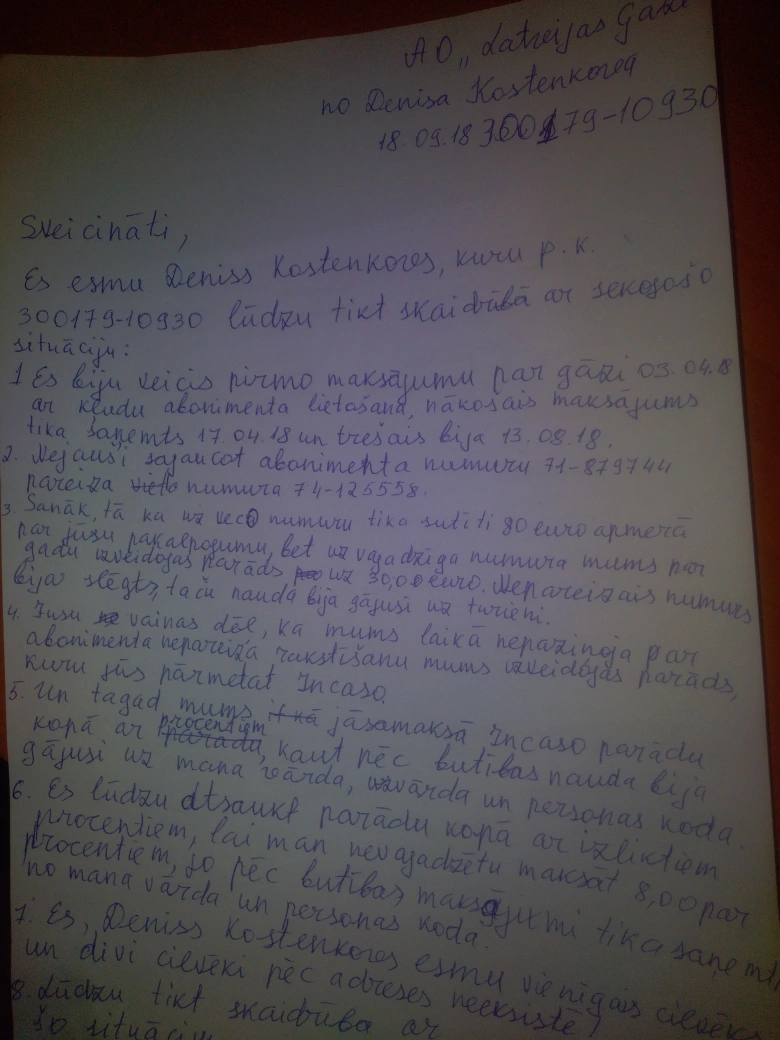 AO „Latvijas Gāze
no Denisa Kostenkova
18.09.18 300179-10930
Sveicināti,
Es esmu Deniss Kostenkovs, kuru p.k.
300179-10930 lūdzu tikt skaidrībā ar sekojošo
situāciju:
1 Es biju veicis pirmo maksājumu par gāzi 03.04.18
ar kļudu abonimenta lietošanā, nākošais maksājums
tika saņemts 17.04.18 un trešais bija 13.08.18.
2. Nejauši sajaucot abonimenta numuru 71-879744
pareiza vieto numura 74-125558.
3. Sanāk, tā ka uz veco numuru tika sutīti 80 euro apmerā
par jūsu pakalpojumu, bet uz vajadzīga numura mums par
gadu izveidojas parāds uz 30,00 euro. Nepareizais numurs
bija slēgts, taču nauda bija gājusi uz turieni.
4. Jusu vainas dēl, ka mums laikā nepaziņoja par
abonimenta nepareiza rakstīšanu mums izveidojas parāds,
kuru jūs pārmetat Incaso.
5. Un tagad mums jāsamaksā Incaso parādu
kopā ar parādu procentiem, kaut pēc butības nauda bija
gājusi uz mana vārda, uzvārda un personas koda.
6. Es lūdzu atsaukt parādu kopā ar izliktiem
procentiem, lai man nevajadzētu maksāt 8,00 par
procentiem, jo pēc butības maksājumi tika saņemti
no mana vārda un personas koda.
7. Es, Deniss Kostenkovs esmu vienīgais cilvēks
un divi cilvēki pēc adreses neeksistē!
8. Lūdzu tikt skaidrība ar
šo situāciju